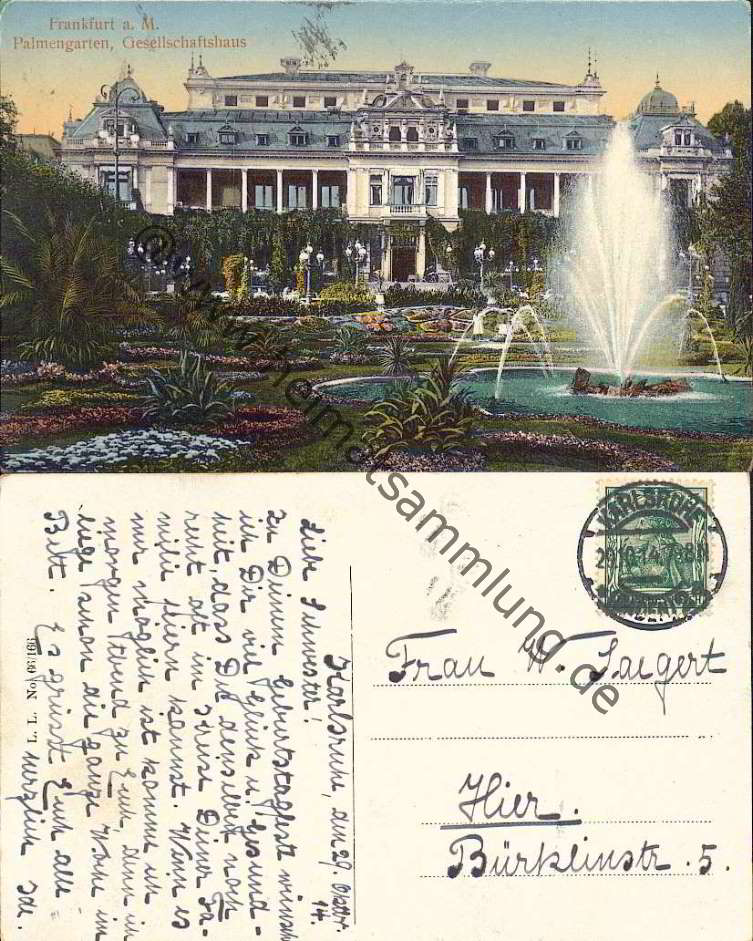 Frankfurt a. M.
Palmengarten, Gesellschaftshaus
© www.heimatsammlung.de
KARLSRUHE
29.10.14.7-8N
Karlsruhe, den 29. Oktbr.
14.
Liebe Schwester!
Zu Deinem Geburtstagfeste wünsch
ich Dir viel Glück u. Gesund-
heit, dass Du denselben noch
recht oft im Kreise Deiner Fa-
milie feiern kannst. Wenn es
mir möglich ist komme ich
morgen Abend zu Euch, denn ich
liege schon die ganze Woche im
Bett. Es grüsst Euch alle
herzlich
L. L. No. 66/166
Frau W. Saegert
Hier.
Bürklinstr. 5.